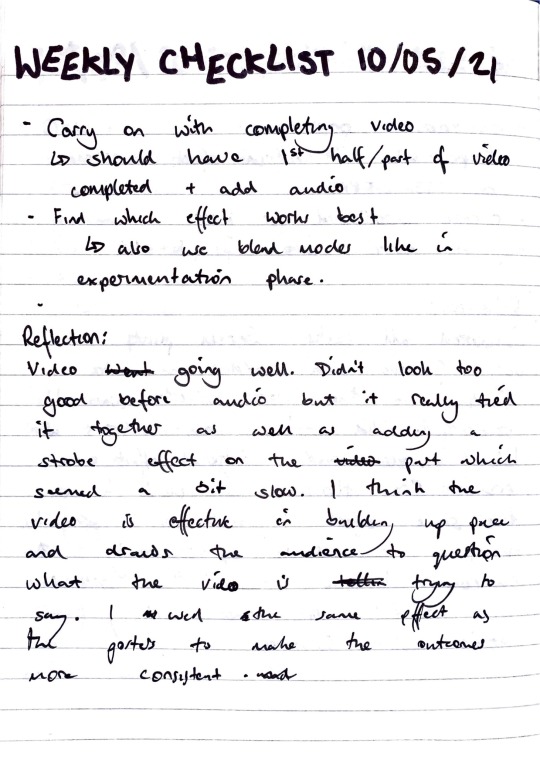 WEEKLY CHECKLIST 10/05/21
- Carry on with completing video
↳ should have 1st half/part of video
completed + add audio
- Find which effect works best
↳ also use blend modes like in
expermentation phase.
-
Reflection:
Video went going well. Didn't look too
good before audio but it really tied
it together as well as adding a
strobe effect on the video part which
seemed a bit slow. I think the
video is effective in building up pace
and draws the audience to question
what the video is tellin trying to
say. I used the same effect as
the posters to make the outcomes
more consistent.